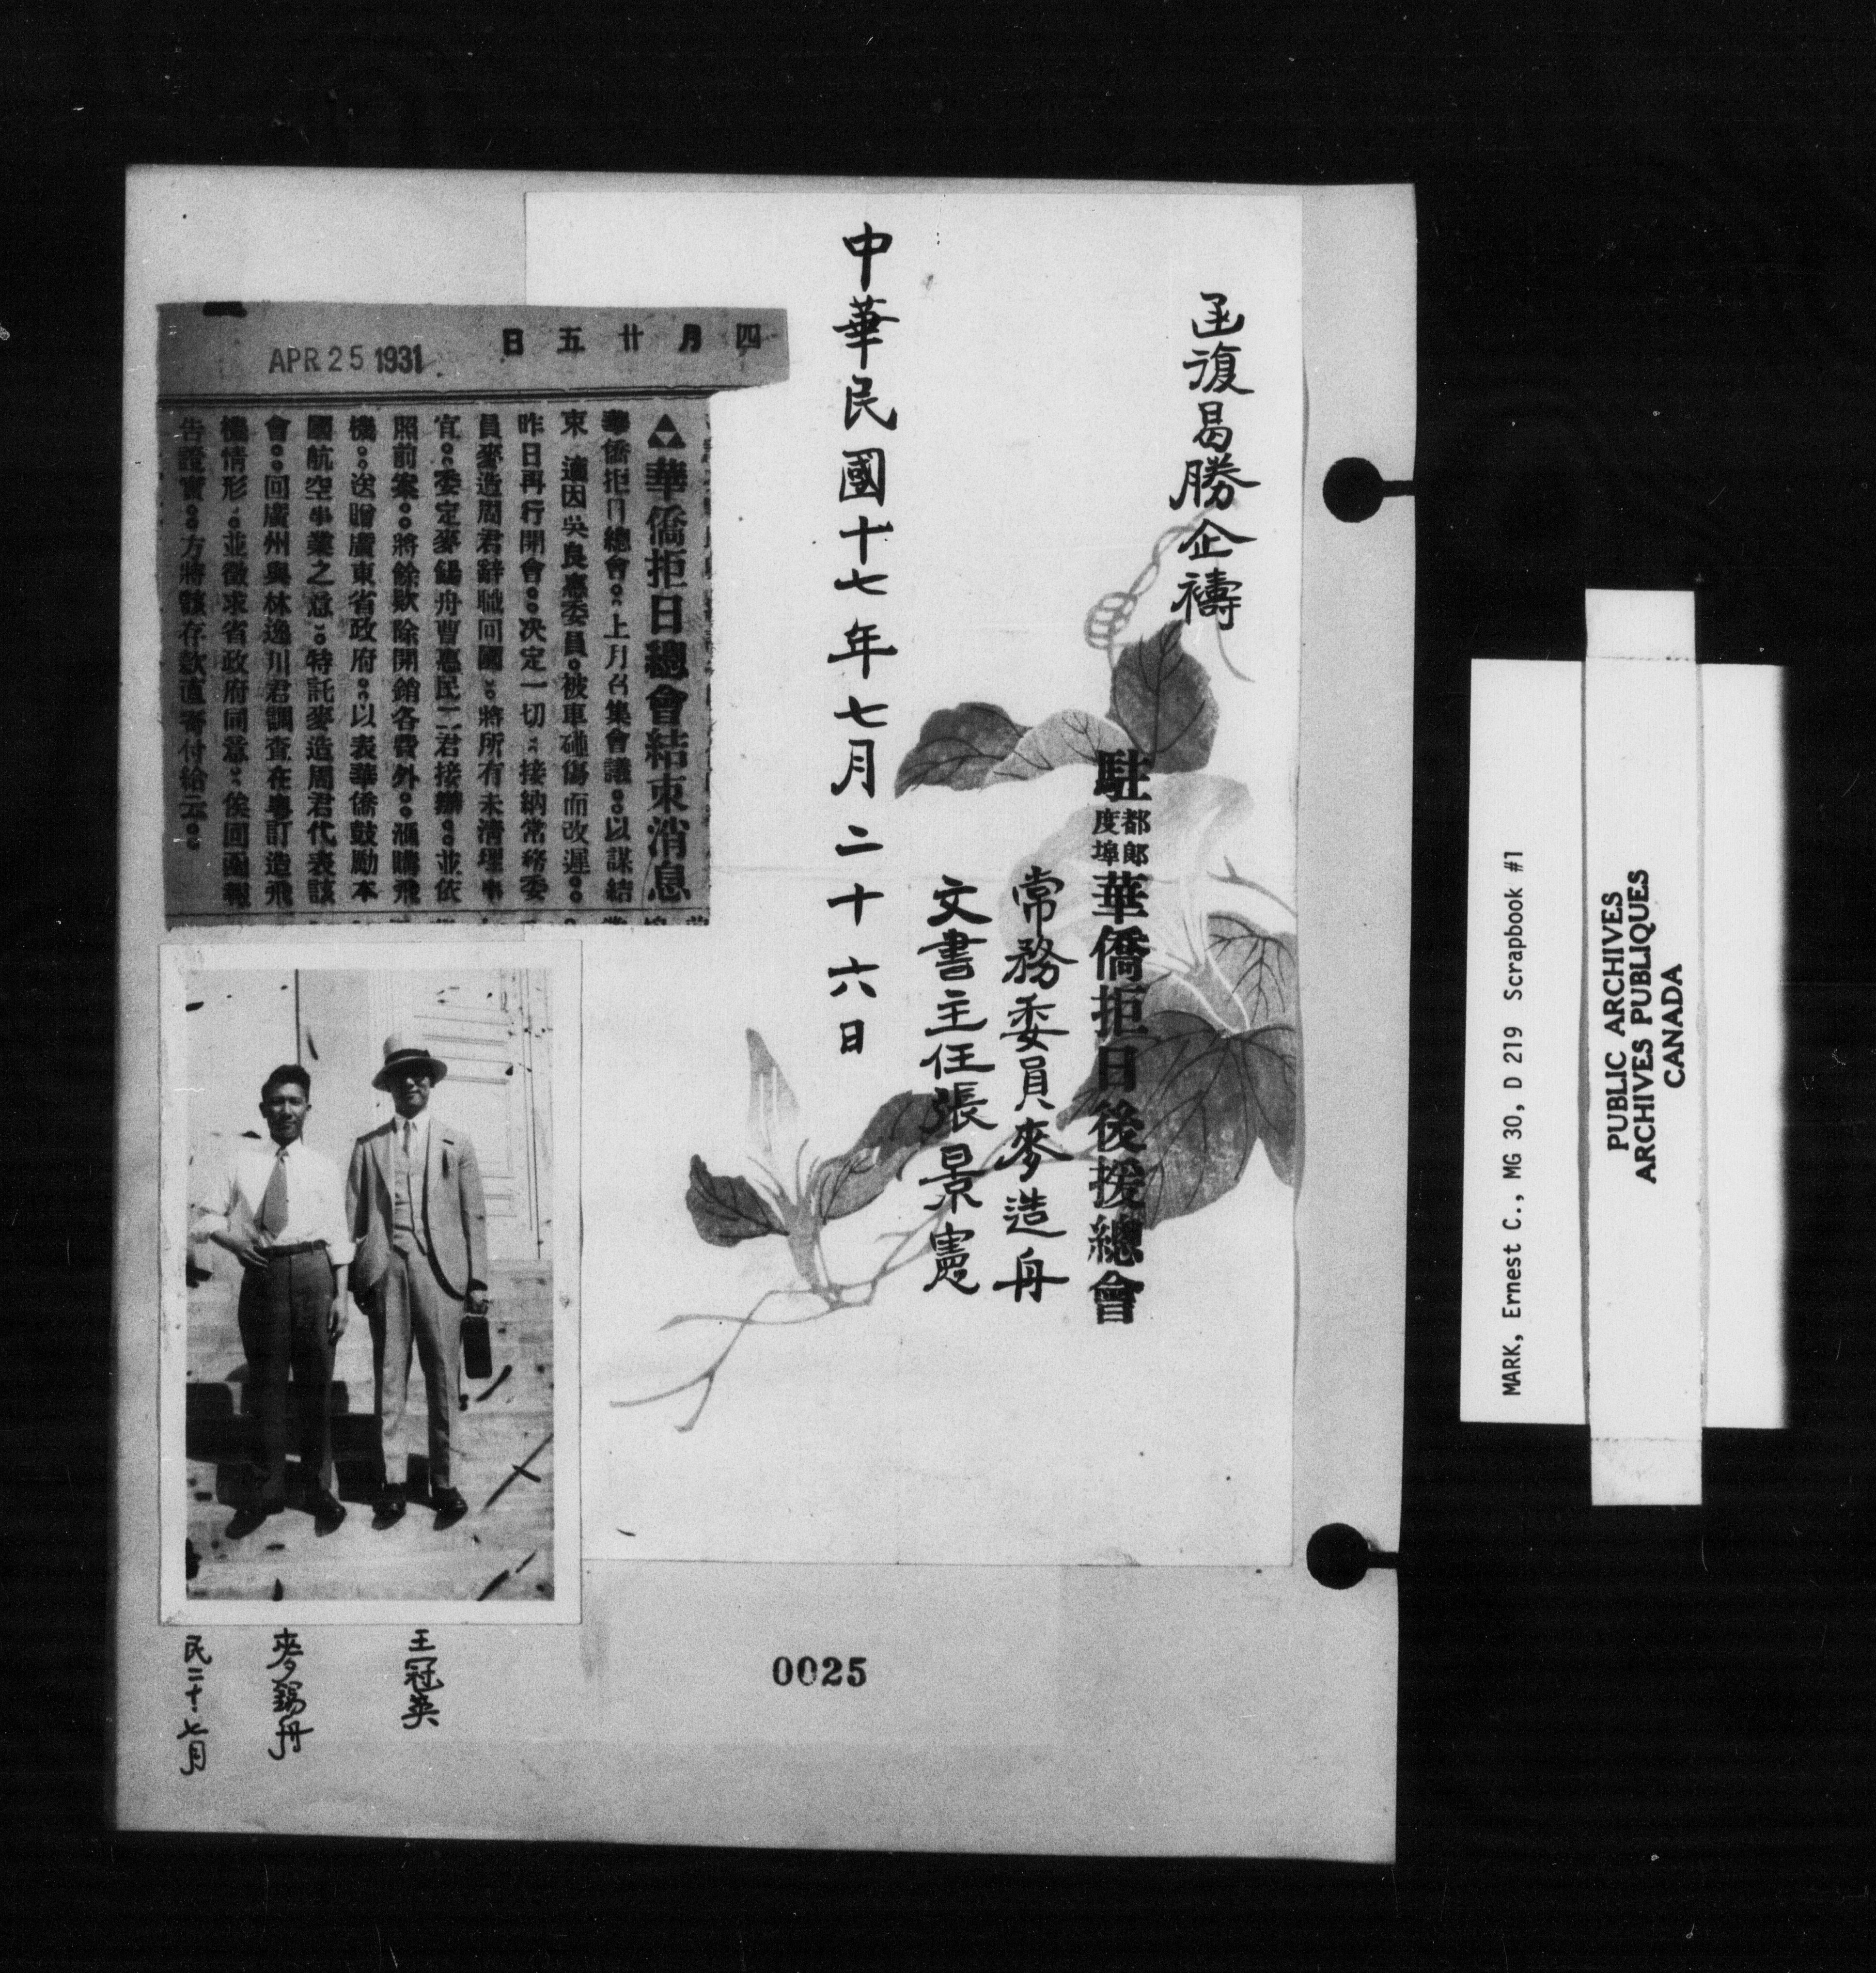 函復曷勝企禱
駐都郎度埠華僑拒日後援總會
常務委員麥造舟
文書主任張景憲
中華民國十七年七月二十六日
四月廿五日
APR 25 1931.
華僑拒日總會結束消息
華僑拒日總會。上月召集會議。以謀結
束 適因吳良惠委員。被車碰傷而改遲。
昨日再行開會。決定一切。接納常務委
員麥造周君辭職回國。將所有未清理事
宜。委定麥錫舟曹惠民二君接辦。並依
照前案。將餘款除開銷各費外。滙購飛
機。送贈廣東省政府。以表華僑鼓勵本
國航空事業之意。特託麥造周君代表該
會。回廣州與林逸川君調查在粵訂造飛
機情形。並徵求省政府同意。俟回函報
告證實。方將該存款直寄付給云。
王冠英
麥錫舟
民二十.七月
0025
MARK, Ernest C., MG 30, D 219 Scrapbook #1
PUBLIC ARCHIVES
ARCHIVES PUBLIQUES
CANADA